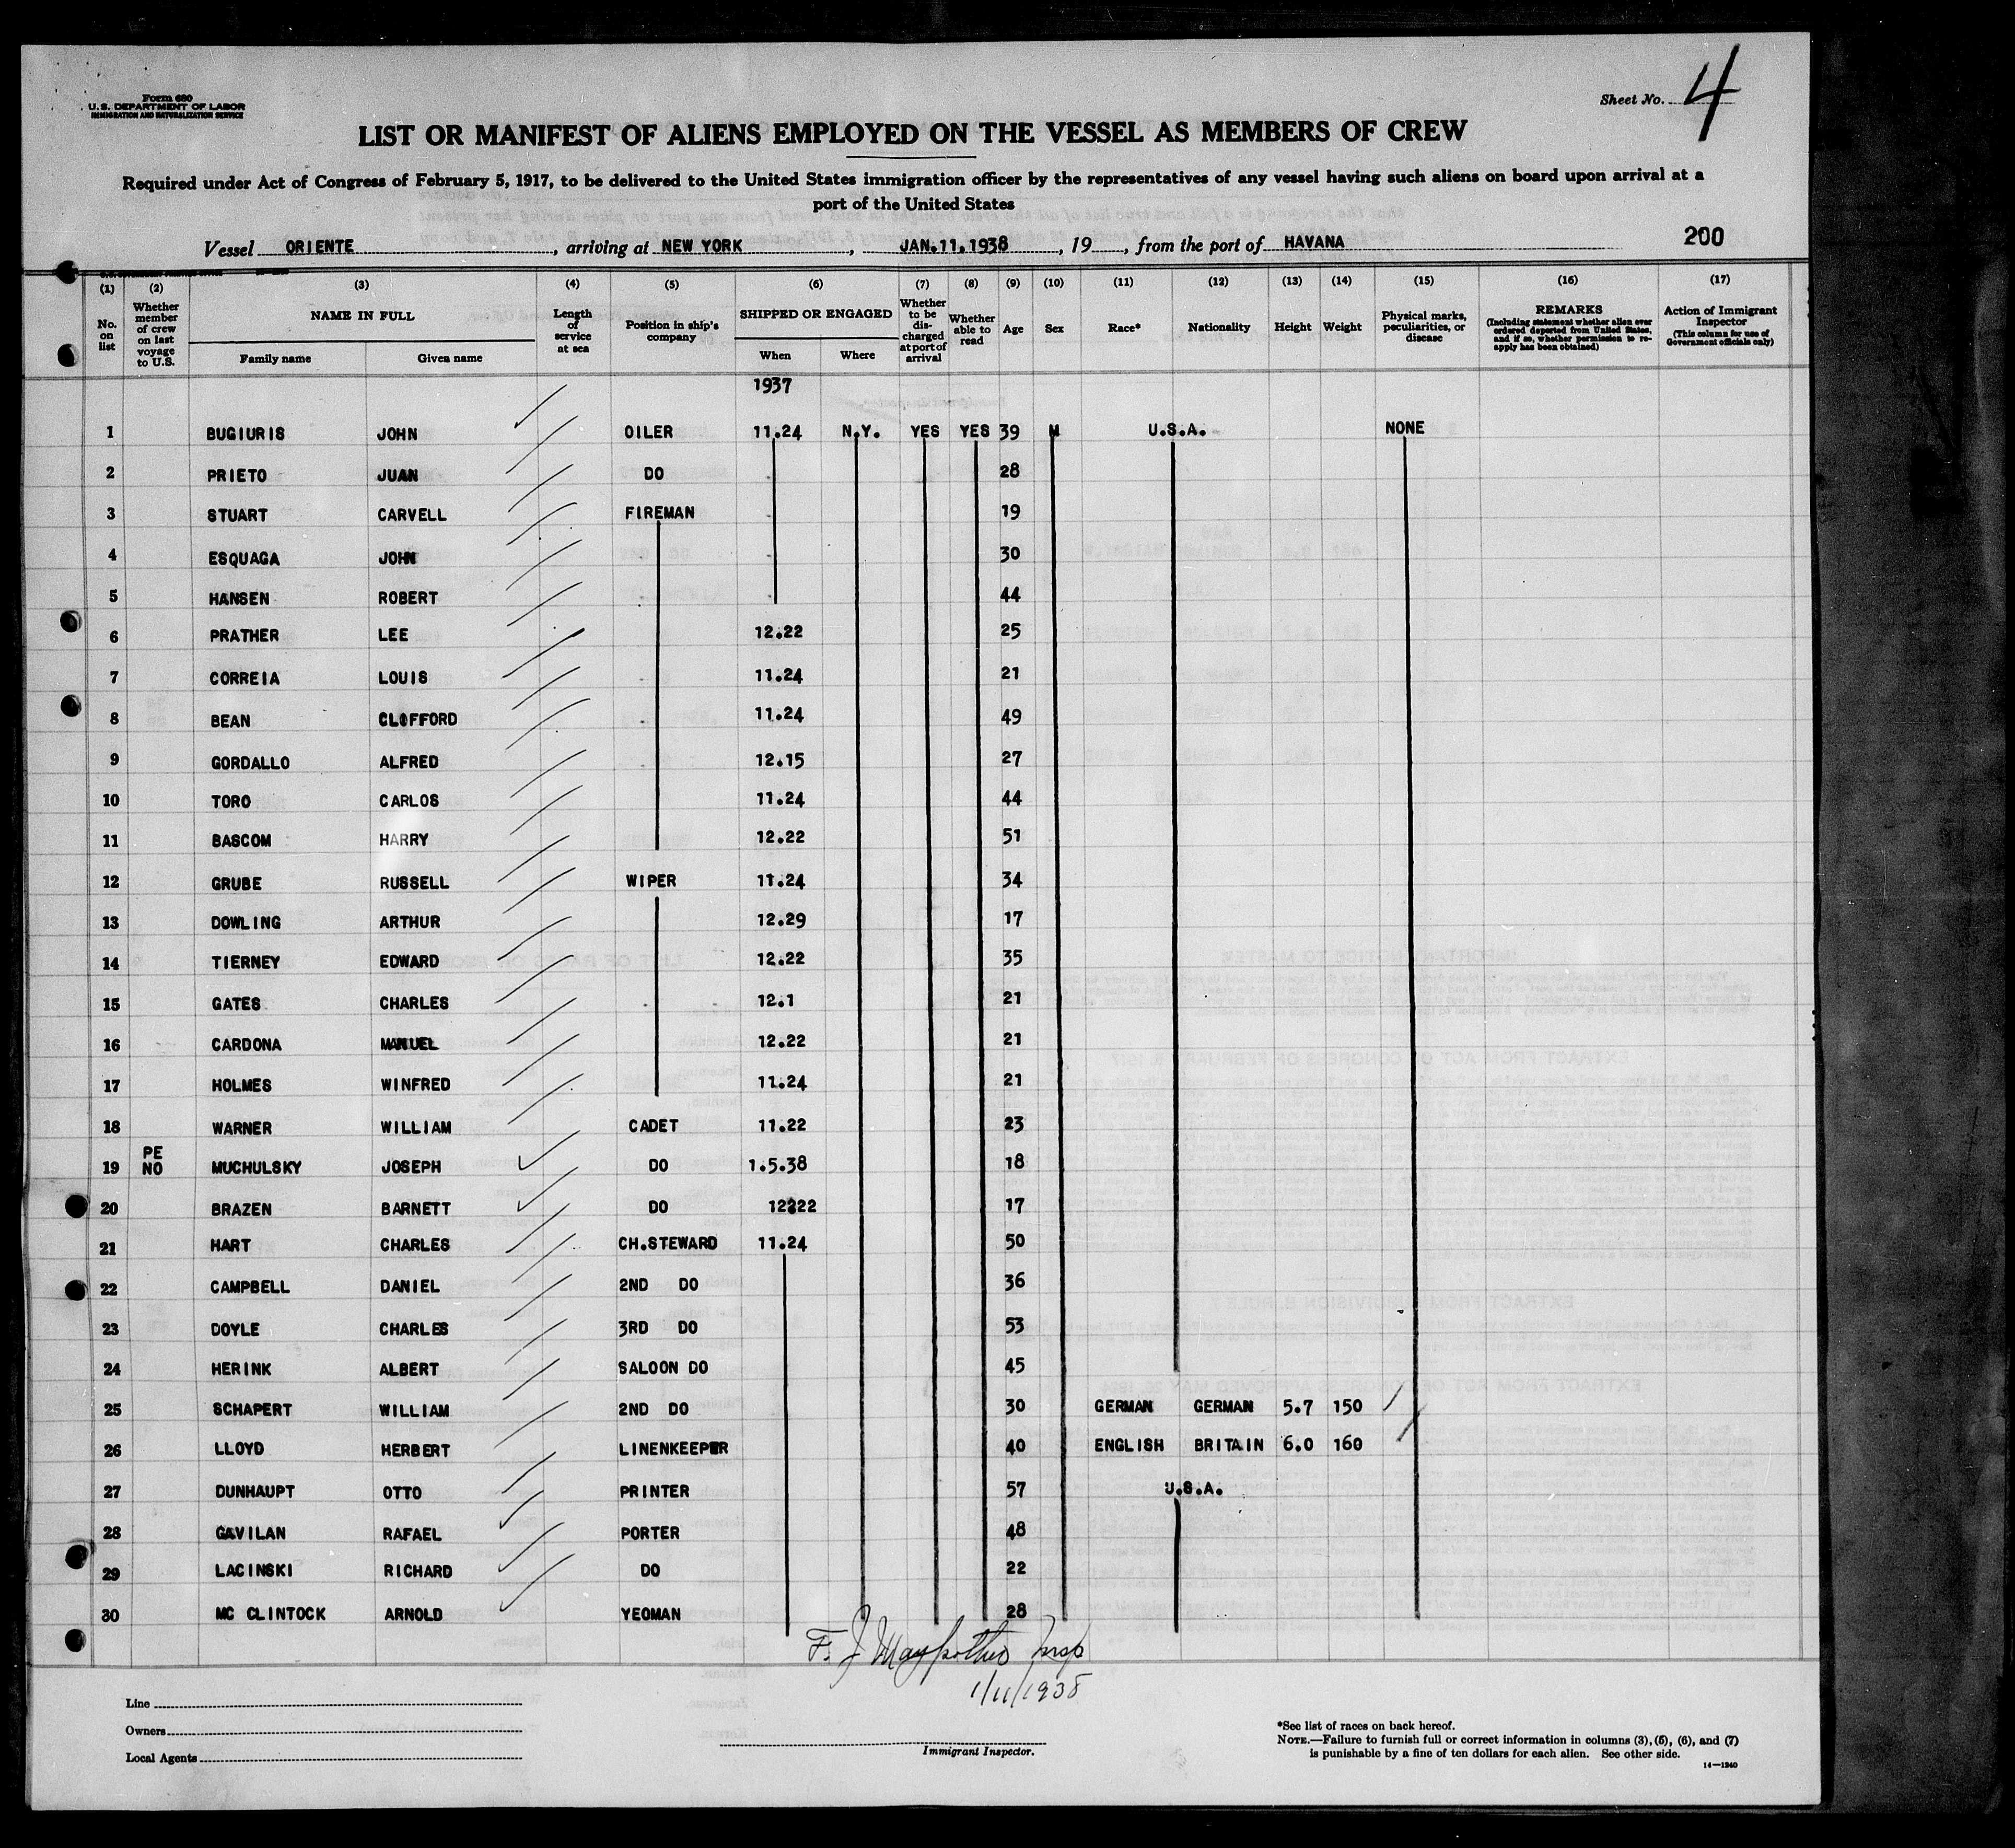 Form 680
U.S. DEPARTMENT OF LABOR
IMMIGRATION AND NATURALIZATION SERVICE
Sheet No. 4
LIST OR MANIFEST OF ALIENS EMPLOYED ON THE VESSEL AS MEMBERS OF CREW
Required under Act of Congress of February 5, 1917, to be delivered to the United States immigration officer by the representatives of any vessel having such aliens on board upon arrival at a
port of the United States
Vessel ORIENTE, arriving at NEW YORK, JAN.11,1938, 19, from the port of HAVANA 200
(1) (2) (3) (4) (5) (6) (7) (8) (9) (10) (11) (12) (13) (14) (15) (16) (17)
No. on list
Whether member of crew on last voyage to U.S.
NAME IN FULL
Family name Given name
Length of service at sea
Position in ship's company
SHIPPED OR ENGAGED
When Where
Whether to be discharged at port of arrival
Whether able to read
Age
Sex
Race*
Nationality
Height
Weight
Physical marks, peculiarities, or disease
REMARKS
(Including statement whether alien ever ordered deported from United States, and if so, whether permission to reapply has been obtained)
Action of Immigrant Inspector
(This column for use of Government officials only)
1937
1 BUGIURIS JOHN OILER 11.24 N.Y. YES YES 39 M U.S.A. NONE
2 PRIETO JUAN DO 28
3 STUART CARVELL FIREMAN 19
4 ESQUAGA JOHN 30
5 HANSEN ROBERT 44
6 PRATHER LEE 12.22 25
7 CORREIA LOUIS 11.24 21
8 BEAN CLOFFORD 11.24 49
9 GORDALLO ALFRED 12.15 27
10 TORO CARLOS 11.24 44
11 BASCOM HARRY 12.22 51
12 GRUBE RUSSELL WIPER 11.24 34
13 DOWLING ARTHUR 12.29 17
14 TIERNEY EDWARD 12.22 35
15 GATES CHARLES 12.1 21
16 CARDONA MANUEL 12.22 21
17 HOLMES WINFRED 11.24 21
18 WARNER WILLIAM CADET 11.22 23
PE
19 NO MUCHULSKY JOSEPH DO 1.5.38 18
20 BRAZEN BARNETT DO 12222 17
21 HART CHARLES CH.STEWARD 11.24 50
22 CAMPBELL DANIEL 2ND DO 36
23 DOYLE CHARLES 3RD DO 53
24 HERINK ALBERT SALOON DO 45
25 SCHAPERT WILLIAM 2ND DO 30 GERMAN GERMAN 5.7 150
26 LLOYD HERBERT LINENKEEPER 40 ENGLISH BRITAIN 6.0 160
27 DUNHAUPT OTTO PRINTER 57 U.S.A.
28 GAVILAN RAFAEL PORTER 48
29 LACINSKI RICHARD DO 22
30 MC CLINTOCK ARNOLD YEOMAN 28
F. J. Insp
1/11/1938
Line
Owners
Local Agents
Immigrant Inspector.
*See list of races on back hereof.
NOTE.—Failure to furnish full or correct information in columns (3), (5), (6), and (7)
is punishable by a fine of ten dollars for each alien. See other side.
14—1240